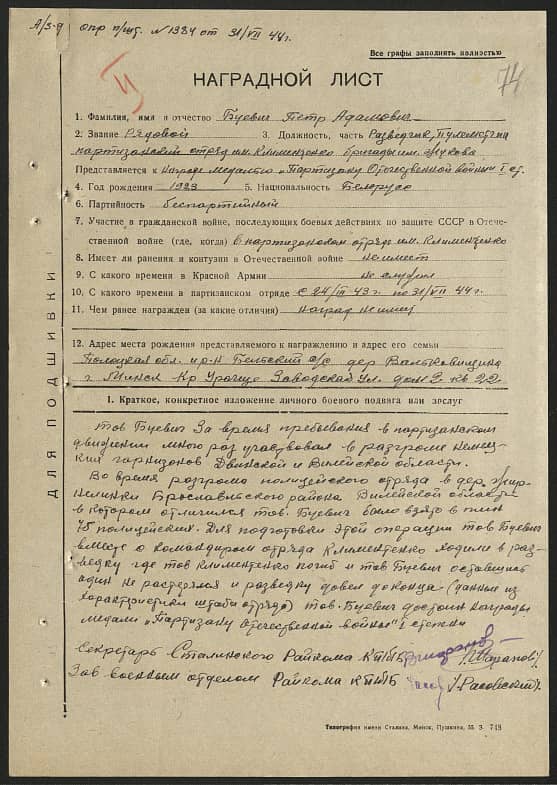 А/3-9 опр п/шт. N 1984 от 31/VII 44г.
Все графы заполнять полностью
НАГРАДНОЙ ЛИСТ
74
1. Фамилия, имя и отчество Буевич Петр Адамович
2. Звание Рядовой 3. Должность, часть Разведчик, Пулеметчик
партизанский отряд им. Клименченко бригады им. Жукова
Представляется к Награде медалью „Партизану Отечественной войны I ст.
4. Год рождения 1923 5. Национальность Белорус
6. Партийность беспартийный
7. Участие в гражданской войне, последующих боевых действиях по защите СССР в Отече-
ственной войне (где, когда) в партизанском отряде им. Клименченко
8. Имеет ли ранения и контузии в Отечественной войне не имеет
9. С какого времени в Красной Армии не служил
10. С какого времени в партизанском отряде с 24/III 43 г. по 31/VII 44г.
11. Чем ранее награжден (за какие отличия) наград не имеет
12. Адрес места рождения представляемого к награждению и адрес его семьи
Полоцкая обл. и р-н с/с дер
г. Минск Кр Урочище Заводская ул. дом 2 кв 22
I. Краткое, конкретное изложение личного боевого подвига или заслуг
тов Буевич За время пребывания в партизанском
движении много раз участвовал в разгроме немец-
ких гарнизонов Двинской и Вилейской области.
Во время разгрома полицейского отряда в дер.
Браславского района Вилейской области
в котором отличился тов. Буевич было взято в плен
75 полицейских. Для подготовки этой операции тов Буевич
вместе с командиром отряда Климентенко ходили в раз-
ведку где тов Климентенко погиб и тов Буевич оставшись
один не растерялся и разведку довел до конца (данные из
характеристики штаба отряда) тов. Буевич достоин награды
медали „Партизану отечественной войны" I степени
Секретарь Сталинского Райкома КП/б/Б /Шарапов/
Зав военным отделом Райкома КП/б/Б /Расовский/
ДЛЯ ПОДШИВКИ
Типография имени Сталина, Минск, Пушкина, 55 З. 748